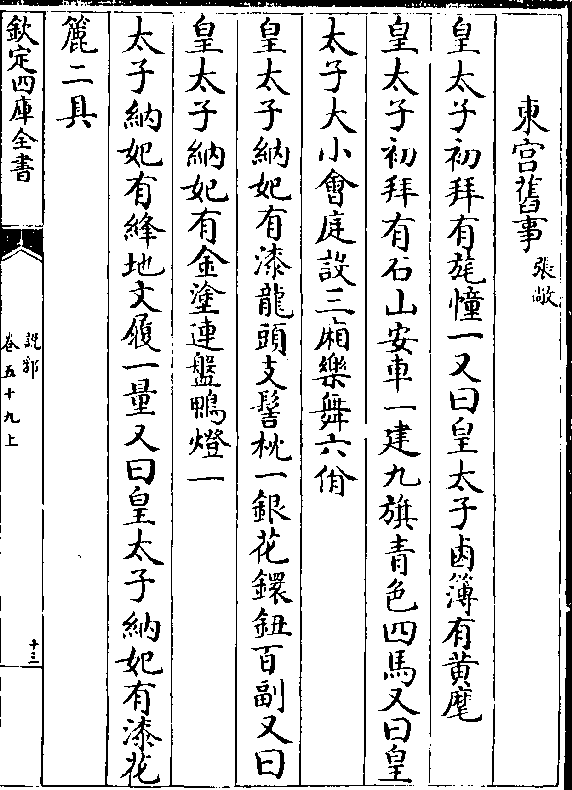 東宫舊事 張敞
皇太子初拜有旄幢一又曰皇太子鹵簿有黄麾
皇太子初拜有石山安車一建九旗青色四馬又曰皇
太子大小會庭設三廂樂舞六佾
皇太子納妃有漆龍頭支髻枕一銀花鐶鈕百副又曰
皇太子納妃有金塗連盤鴨燈一
太子納妃有絳地文履一量又曰皇太子納妃有漆花
簏二具
欽定四庫全書
說郛
卷五十九上
十三